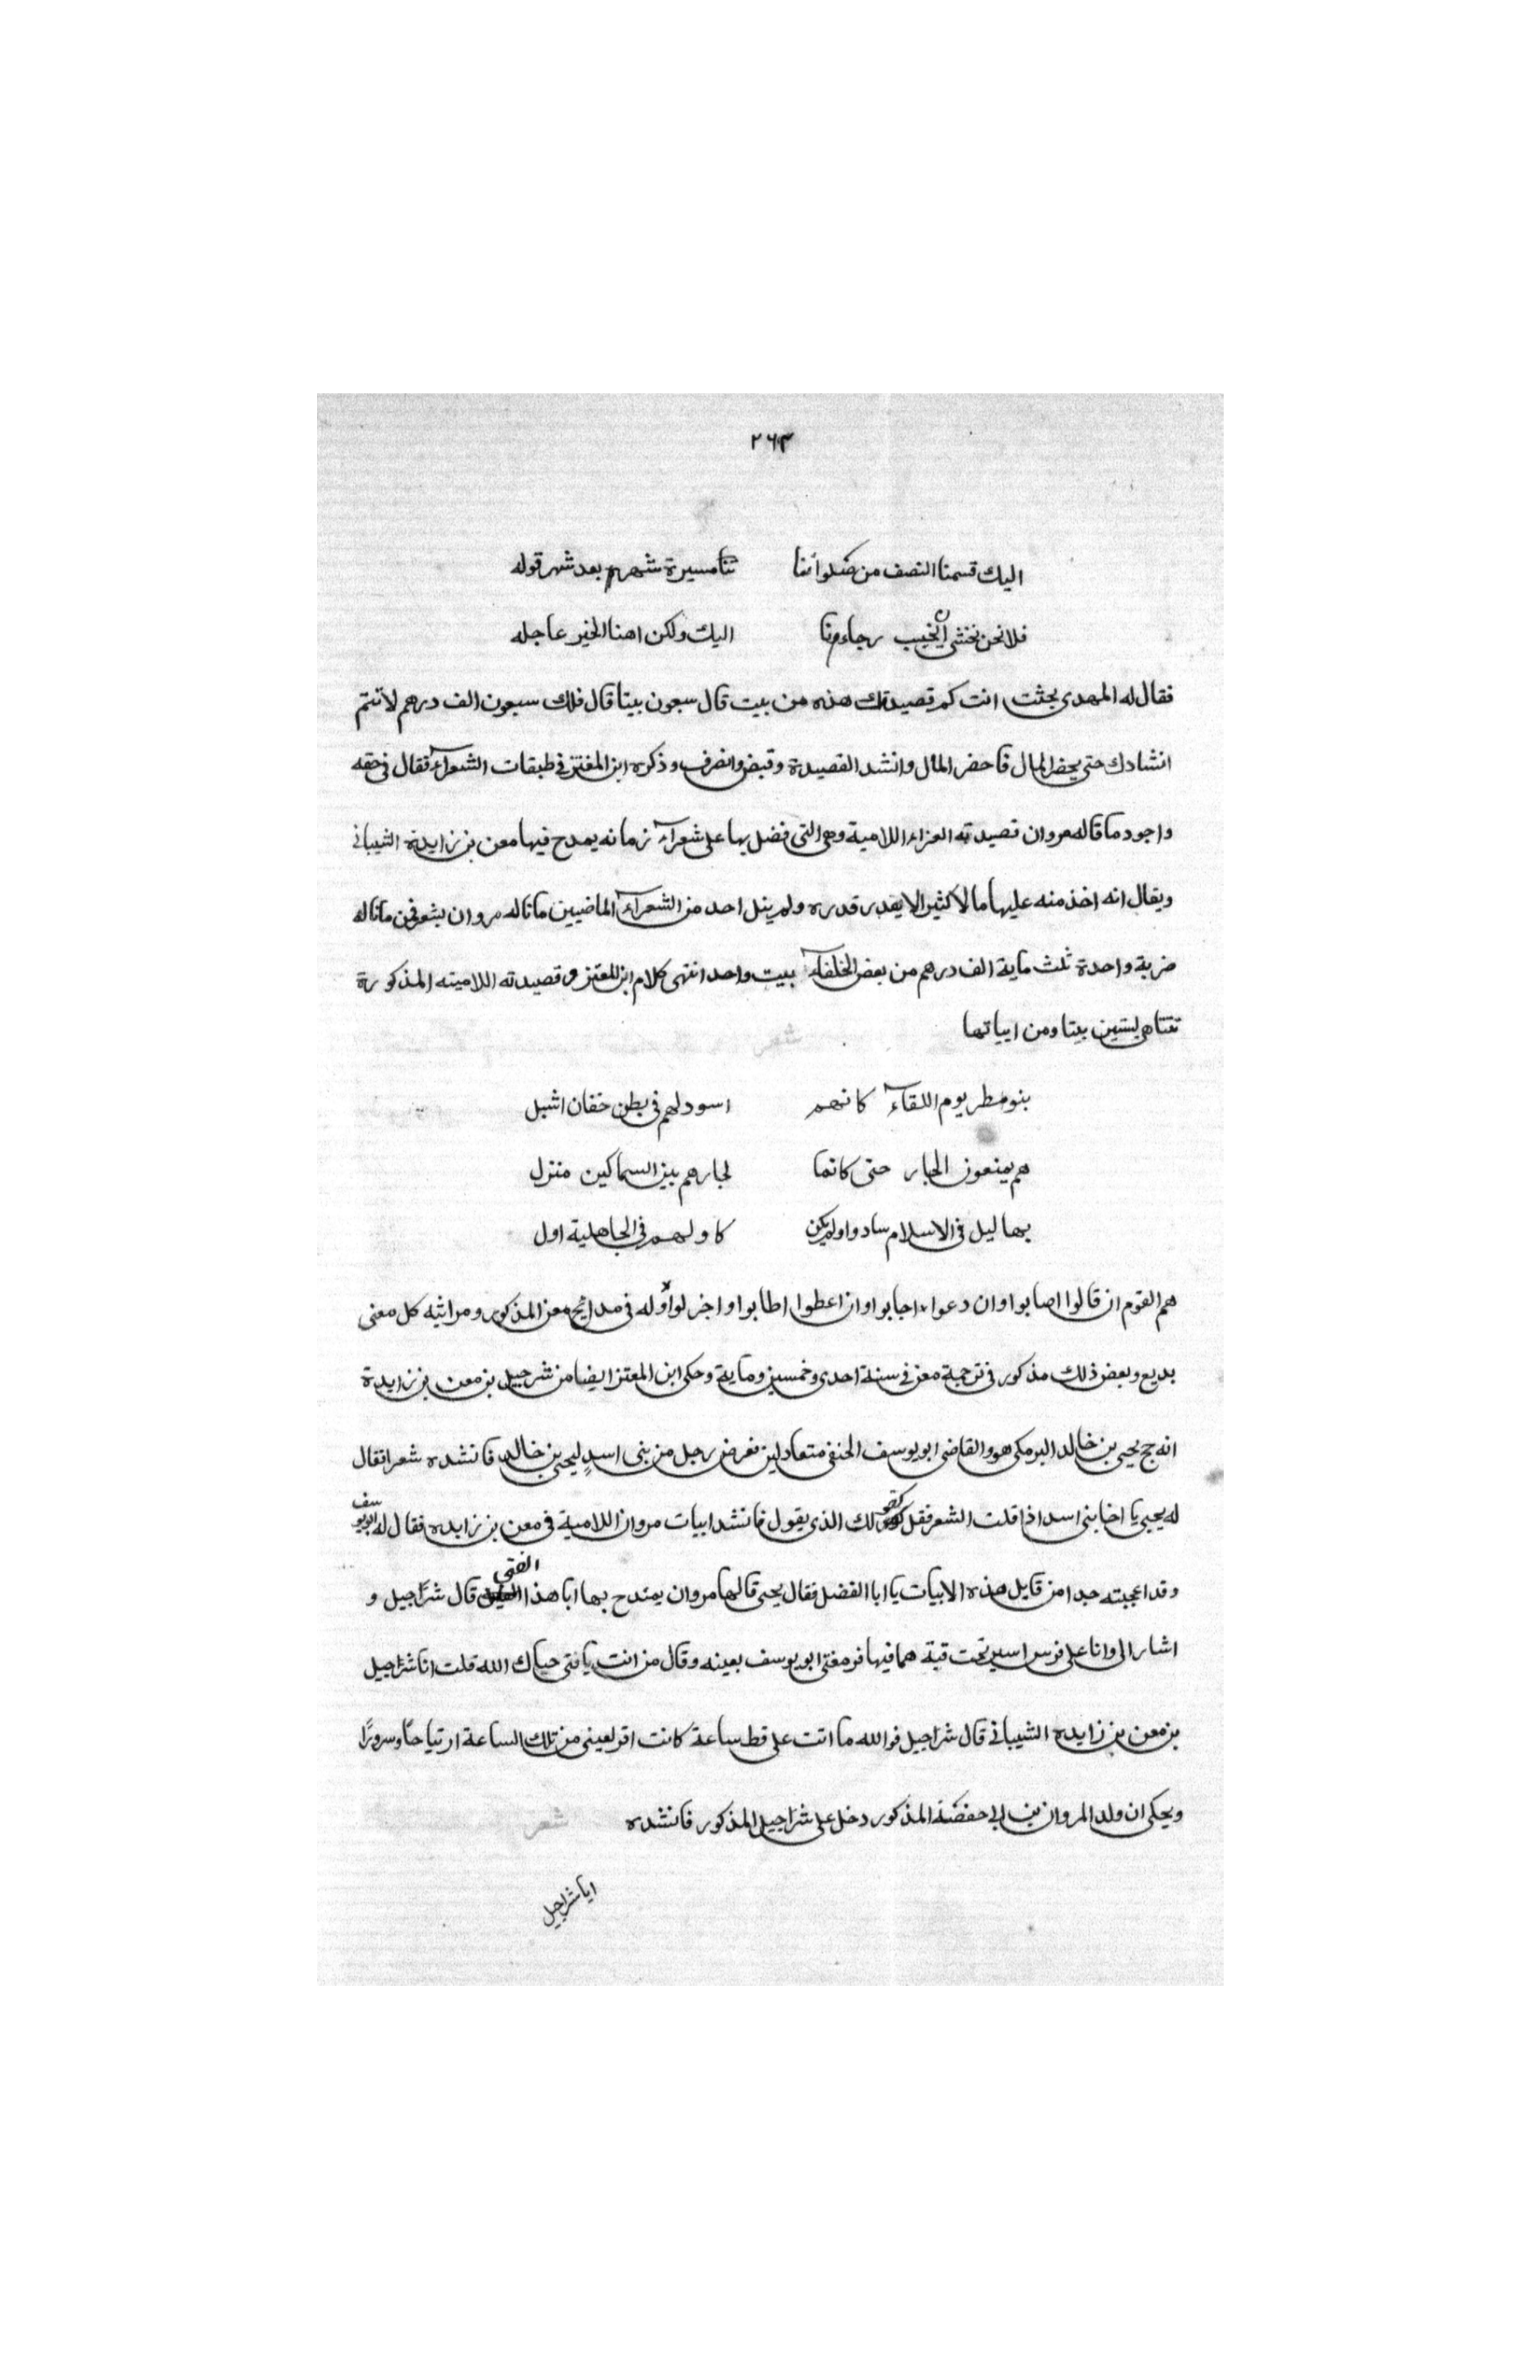 ٢٦٣
اليك قسمنا النصف من صلواتنا تنا مسيرة شهر بعد شهر قوله
فلا نحن نخشى ان يخيب رجاءونا اليك ولكن اهنا الخير عاجله
فقال له المهدى بحثت انت كم قصيدتك هذه من بيت قال سبعون بيتا قال فلك سبعون الف درهم لا تتم
انشادك حتى يحضر المال فاحضر المال وانشد القصيدة وقبض وانصرف وذكره ابن المعتز فى طبقات الشعراء فقال فى حقه
واجود ما قاله مروان قصيدته الغراء اللامية وهى التى فضل بها على شعراء زمانه يمدح فيها معن بن زايدة الشيبانى
ويقال انه اخذ منه عليها مالا كثيرا لا يقدر قدره ولم ينل احد من الشعراء الماضيين ما ناله مروان بشعره فمن ما ناله
ضربة واحدة ثلث ماية الف درهم من بعض الخلفاء ببيت واحد انتهى كلام ابن المعتز وقصيدته اللاميته المذكورة
تتناهى بستين بيتا ومن ابياتها شعر
بنو مطر يوم اللقاء كانهم اسود لهم فى بطن خفان اشبل
هم يمنعون الجار حتى كانما لجارهم بين السماكين منزل
بهاليل فى الاسلام سادوا ولم يكن كاولهم فى الجاهلية اول
هم القوم ان قالوا اصابوا وان دعوا اجابوا وان اعطوا اطابوا واجزلوا وله فى مدائح معن المذكور ومراثيه كل معنى
بديع وبعض ذلك مذكور فى ترجمة معن فى سنة احدى وخمسين وماية وحكى ابن المعتز ايضا من شرجيل بن معن بن زايدة
انه حج يحيى بن خالد البرمكى هو والقاضى ابو يوسف الحنفى متعادلين فعرض رجل من بنى اسد ليحيى بن خالد فانشده شعرا فقال
له يحيى يا اخا بنى اسد اذا قلت الشعر فقل كقولك الذى يقول فانشد ابيات مروان اللامية فى معن بن زايده فقال له ابو يوسف
وقد اعجبته جدا من قايل هذه الابيات يا ابا الفضل فقال يحيى قالها مروان يمتدح بها ابا هذا الفتى قال شراجيل و
اشار الى وانا على فرس اسير تحت قبة هما فيها فرمغنى ابو يوسف بعينه وقال من انت يا فتى حياك الله قلت انا شراجيل
بن معن بن زايده الشيبانى قال شراجيل فوالله ما اتت على قط ساعة كانت اقر لعينى من تلك الساعة ارتياحا وسرورا
ويحكى ان ولد المروان بن ابى حفصة المذكور دخل على شراجيل المذكور فانشده شعر
ايا شراجيل